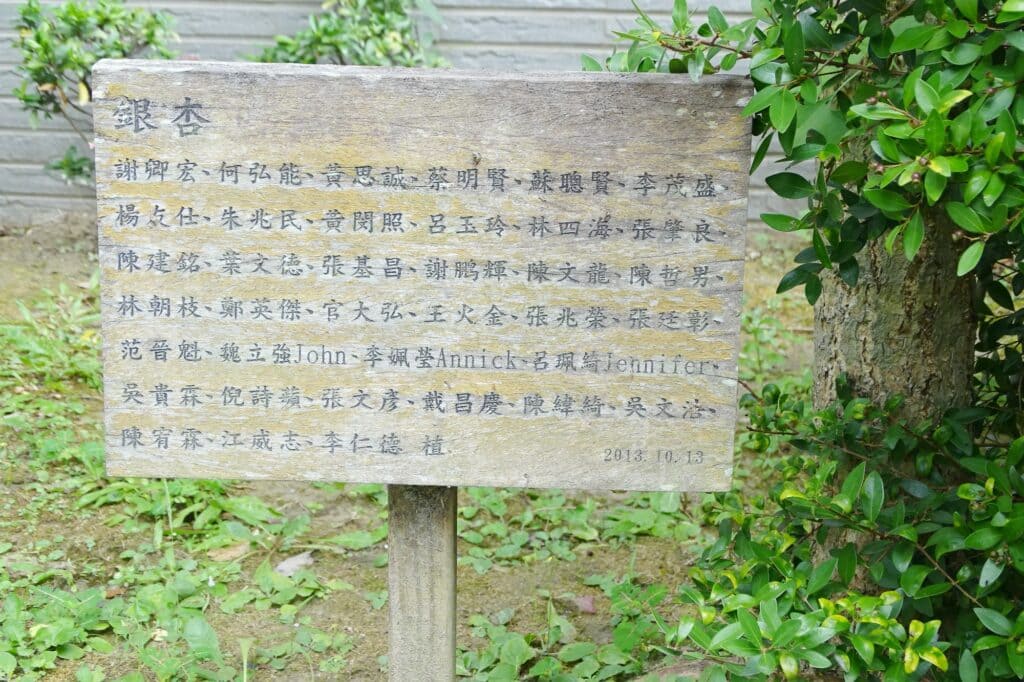 銀杏
謝卿宏、何弘能、黃思誠、蔡明賢、蘇聰賢、李茂盛、
楊友仕、朱兆民、黃閔照、呂玉玲、林四海、張肇良、
陳建銘、葉文德、張基昌、謝鵬輝、陳文龍、陳哲男、
林朝枝、鄭英傑、官大弘、王火金、張兆榮、張廷彰、
范晉魁、魏立強John、李姵瑩Annick、呂珮綺Jennifer、
吳貴霖、倪詩蘋、張文彥、戴昌慶、陳緯綺、吳文沾、
陳宥霖、江威志、李仁德 植
2013.10.13